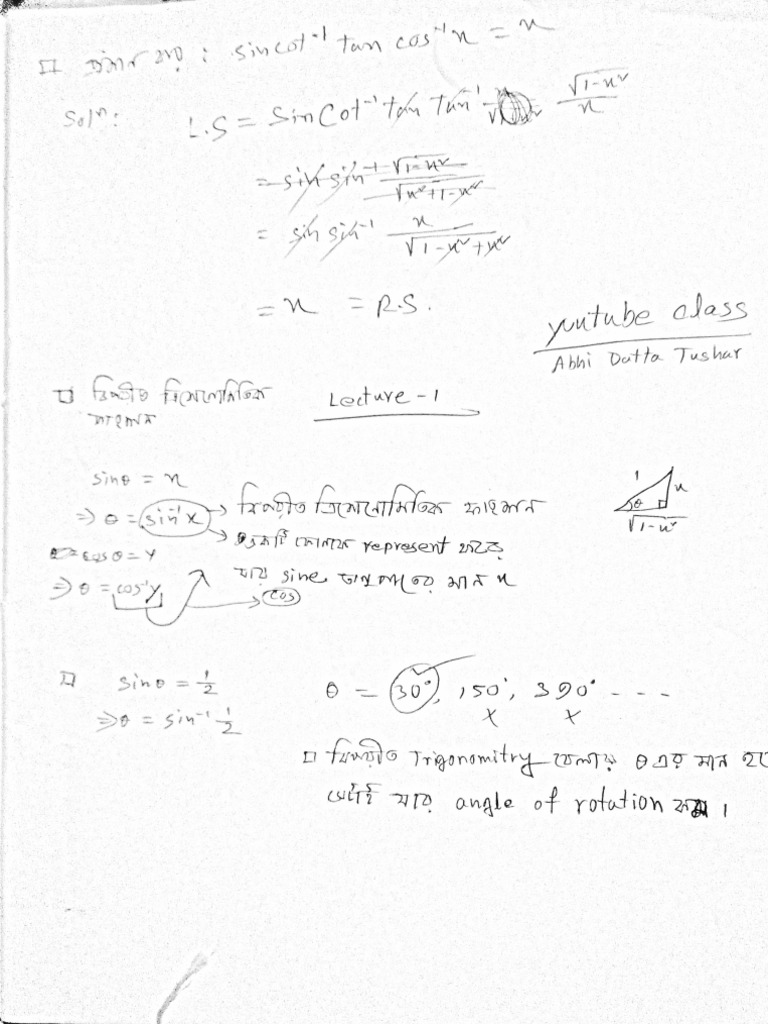 □ প্রমাণ কর : sin cot⁻¹ tan cos⁻¹x = x
Solⁿ: L.S = sin cot⁻¹ tan tan⁻¹ √1-x² / x
= sin sin⁻¹ √1-x² / √x²+1-x²
= sin sin⁻¹ x / √1-x²+x²
= x = R.S.
youtube class
Abhi Datta Tushar
□ বিপরীত ত্রিকোণোমিতিক
ফাংশন
Lecture - 1
sinθ = x
⇒ θ = sin⁻¹x → বিপরীত ত্রিকোণোমিতিক ফাংশন
→ একটি কোনকে represent করে
যার sine অনুপাতের মান x
cosθ = y
⇒ θ = cos⁻¹y → cos
1
x
θ
√1-x²
□ sinθ = 1/2
⇒ θ = sin⁻¹ 1/2
θ = 30°, 150°, 390° - - - -
x x
□ বিপরীত Trigonomitry বেলায় θ এর মান হবে
সেটাই যার angle of rotation কম ।